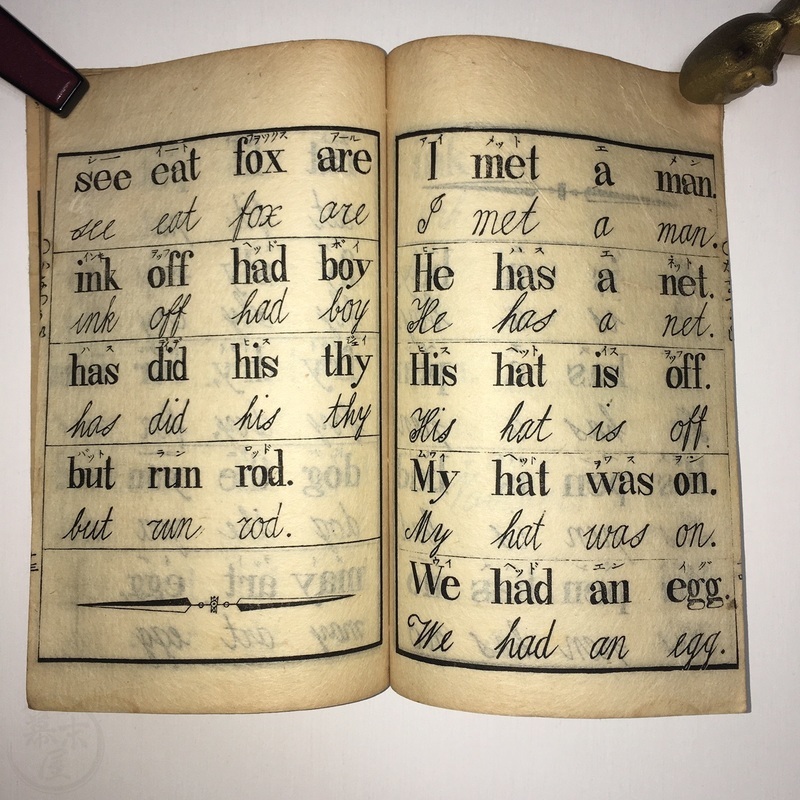 シー イート フヲックス アール
see eat fox are
see eat fox are
インキ ヲッフ ヘッド ボイ
ink off had boy
ink off had boy
ハス ヂデ ヒス ジェイ
has did his thy
has did his thy
バット ラーン ロッド
but run rod.
but run rod.
アイ メット エ メン
I met a man.
I met a man.
ヒー ハス エ ネット
He has a net.
He has a net.
ヒス ヘット イス ヲッフ
His hat is off.
His hat is off.
ムワイ ヘット ヲワス ヲン
My hat was on.
My hat was on.
ウイ ヘッド エン イグ
We had an egg.
We had an egg.